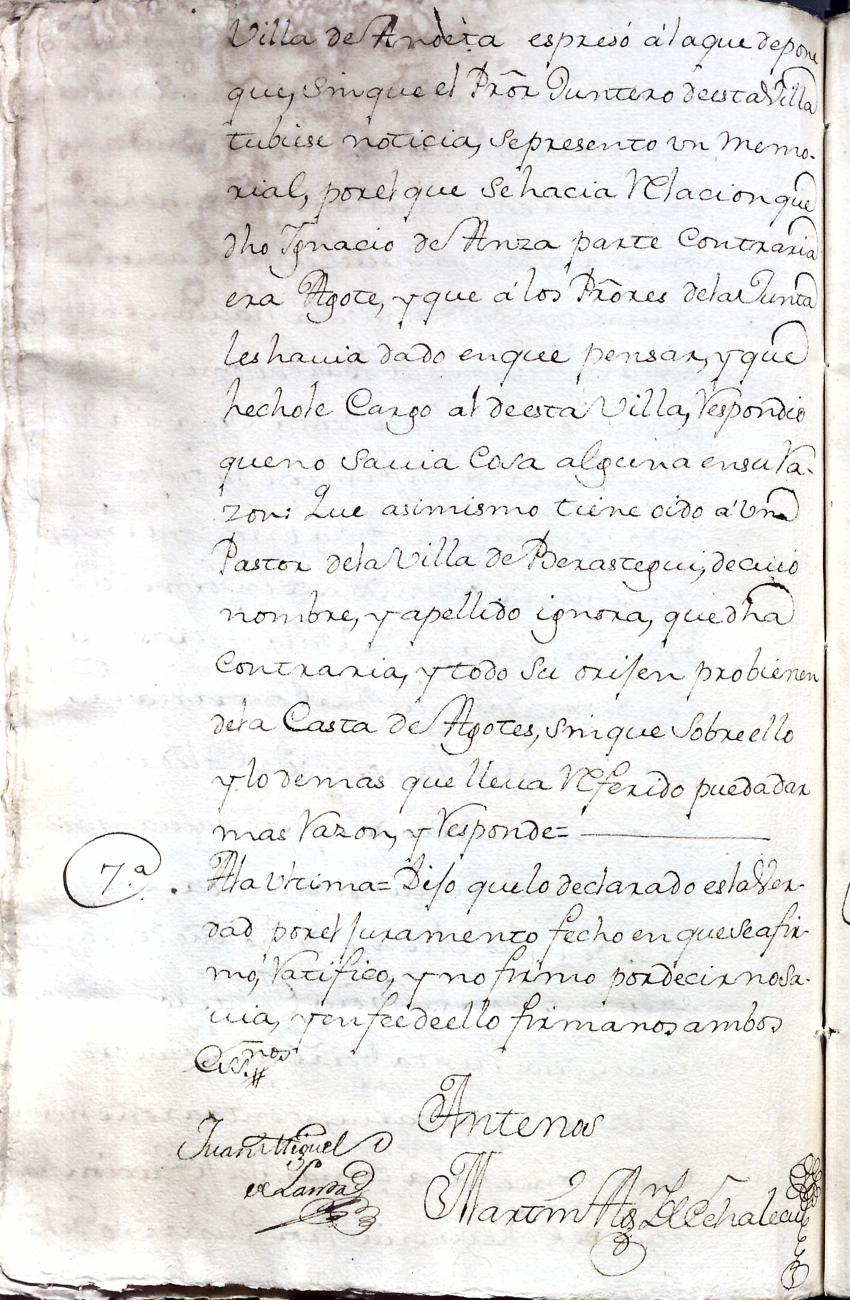 Villa de Andeta espresó á la que depone
que, sin que el Prõr Juntero de esta Villa
tubiese noticia, se presento vn Memo-
rial, por el que se hacia Relacion que
dho Ygnacio de Anza parte Contraria
era Agote, y que á los Prõres de la Junta
les havia dado en que pensar, y que
hechole Cargo al de esta Villa, Respondio
que no savia Cosa alguna en su Ra-
zon: Que asimismo tiene oido á vn
Pastor de la Villa de Berastegui, de cuio
nombre, y apellido ignora, que dha
Contraria, y todo su orijen probienen
de la Casta de Agotes, sin que sobre ello
y lo demas que lleva Referido pueda dar
mas Razon, y Responde=
7.ª A la vltima= Dijo que lo declarado es la Ver-
dad por el Juramento fecho en que se afir-
mó, Ratifico, y no firmo por decir no sa-
via, y en fee de ello firmamos ambos
Essnos
Antenos
Juan Miguel
de Landa
Martin